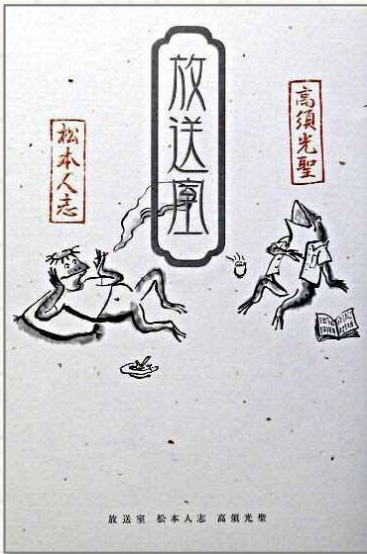 放送凰
高須光聖
松本人志
放送室 松本人志 高須光聖